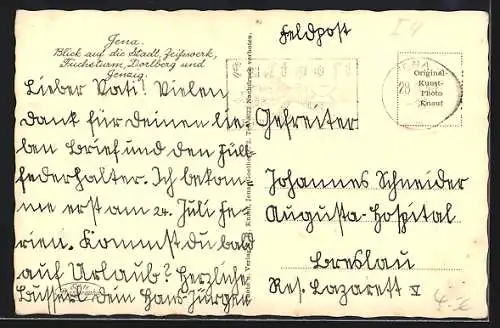 Jena.
Blick auf die Stadt, Zeißwerk,
Fuchsturm, Dorlberg und
Jenzig.
Lieber Vati! Vielen
Dank für deinen lie-
ben Brief und den Füll-
federhalter. Ich bekom-
me erst am 24. Juli Fe-
rien. Kommst du bald
auf Urlaub? Herzliche
Busserl dein Hans-Jürgen
Feldpost
JENA
28
Original-
Kunst-
Photo
Knauf
Gefreiter
Johannes Schneider
Augusta-Hospital
Breslau
Res. Lazarett V
Nachdruck verboten.